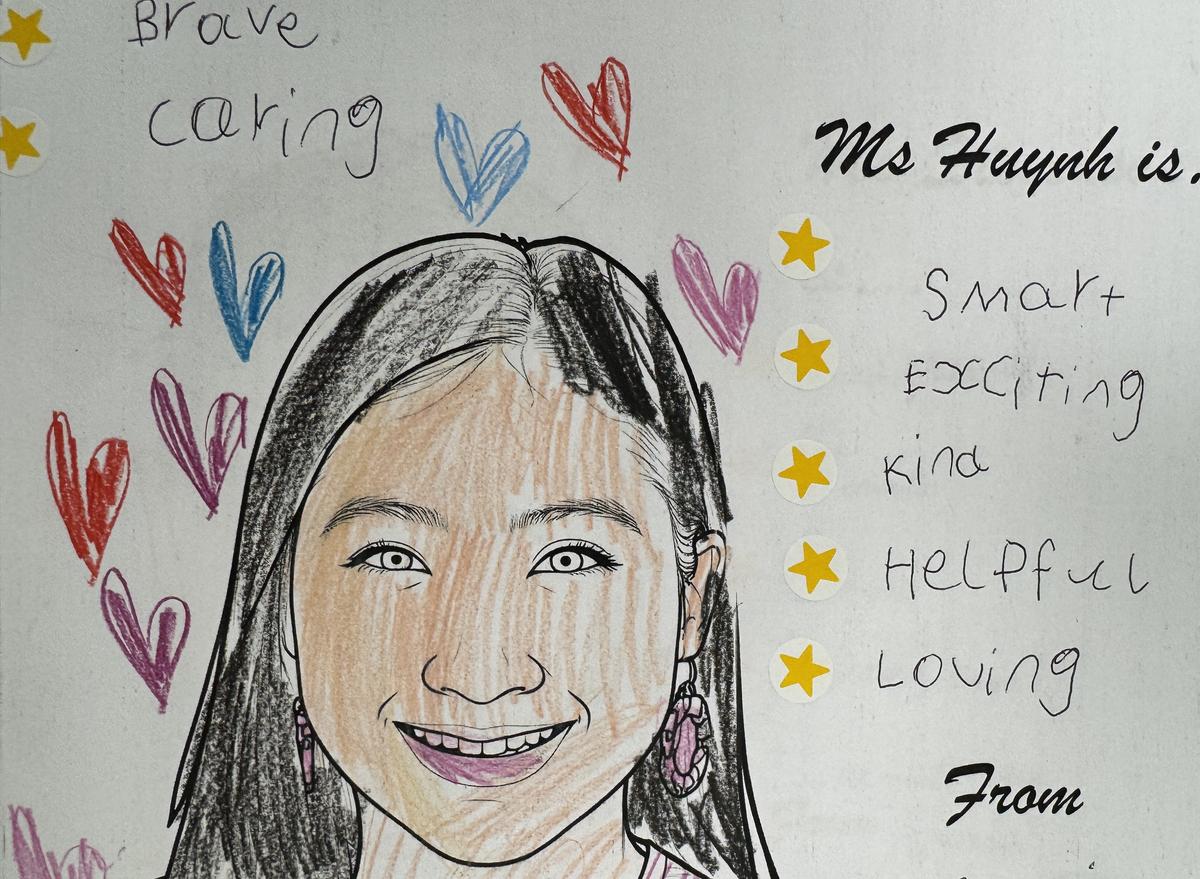 Brave
caring
Ms Huynh is.
Smart
EXCiting
kind
HelPful
Loving
From